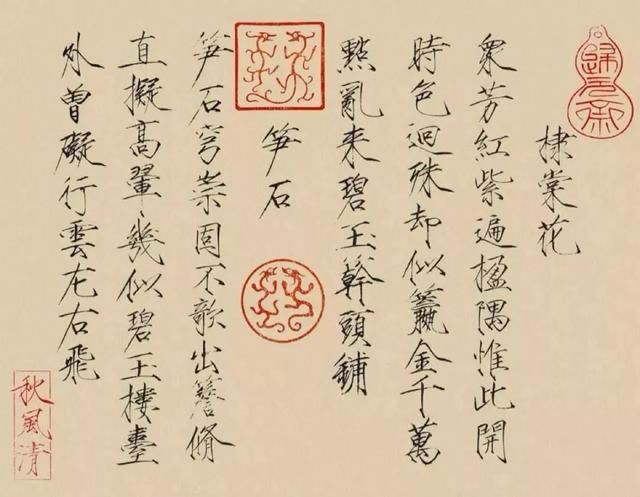 棣棠花
衆芳紅紫遍楹隅惟此開
時色迥殊却似籯金千萬
點亂来碧玉幹頭鋪
笋石
笋石穹崇固不欹出簷脩
直擬高翬、幾似碧玉樓臺
外曾礙行雲左右飛
秋風清